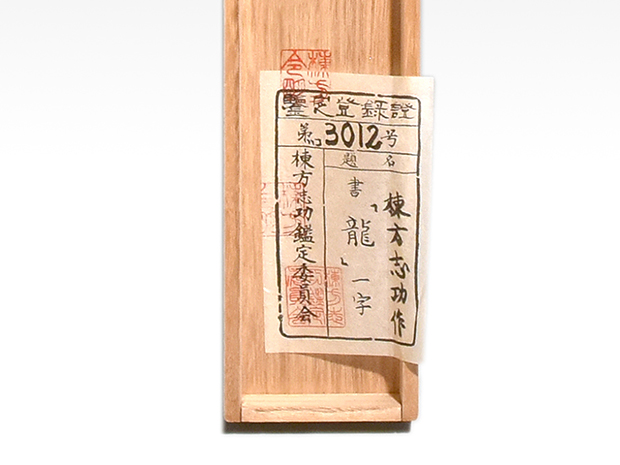 鑒定登録證
第3012号
題名
棟方志功作
書「龍」一字
棟方志功鑑定委員会